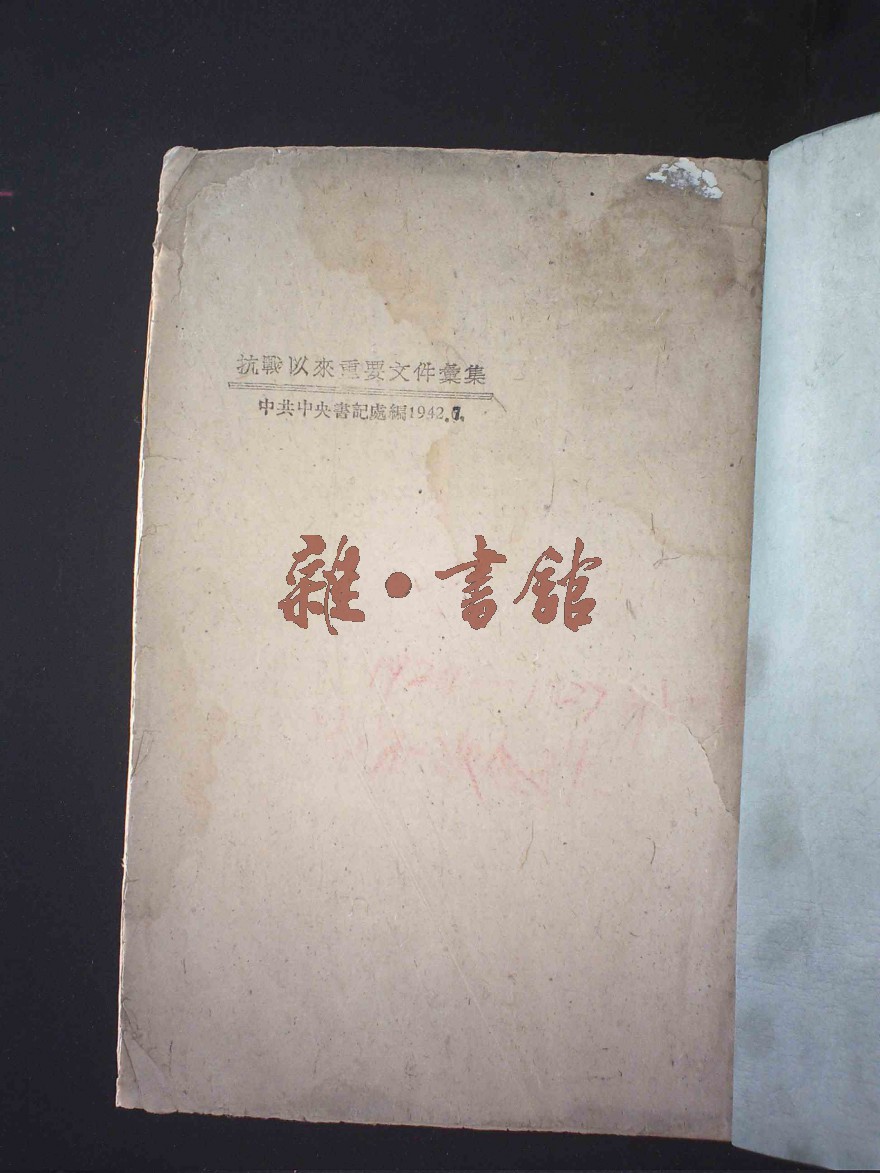 抗戰以來重要文件彙集
中共中央書記處編1942.7.
雜·書館